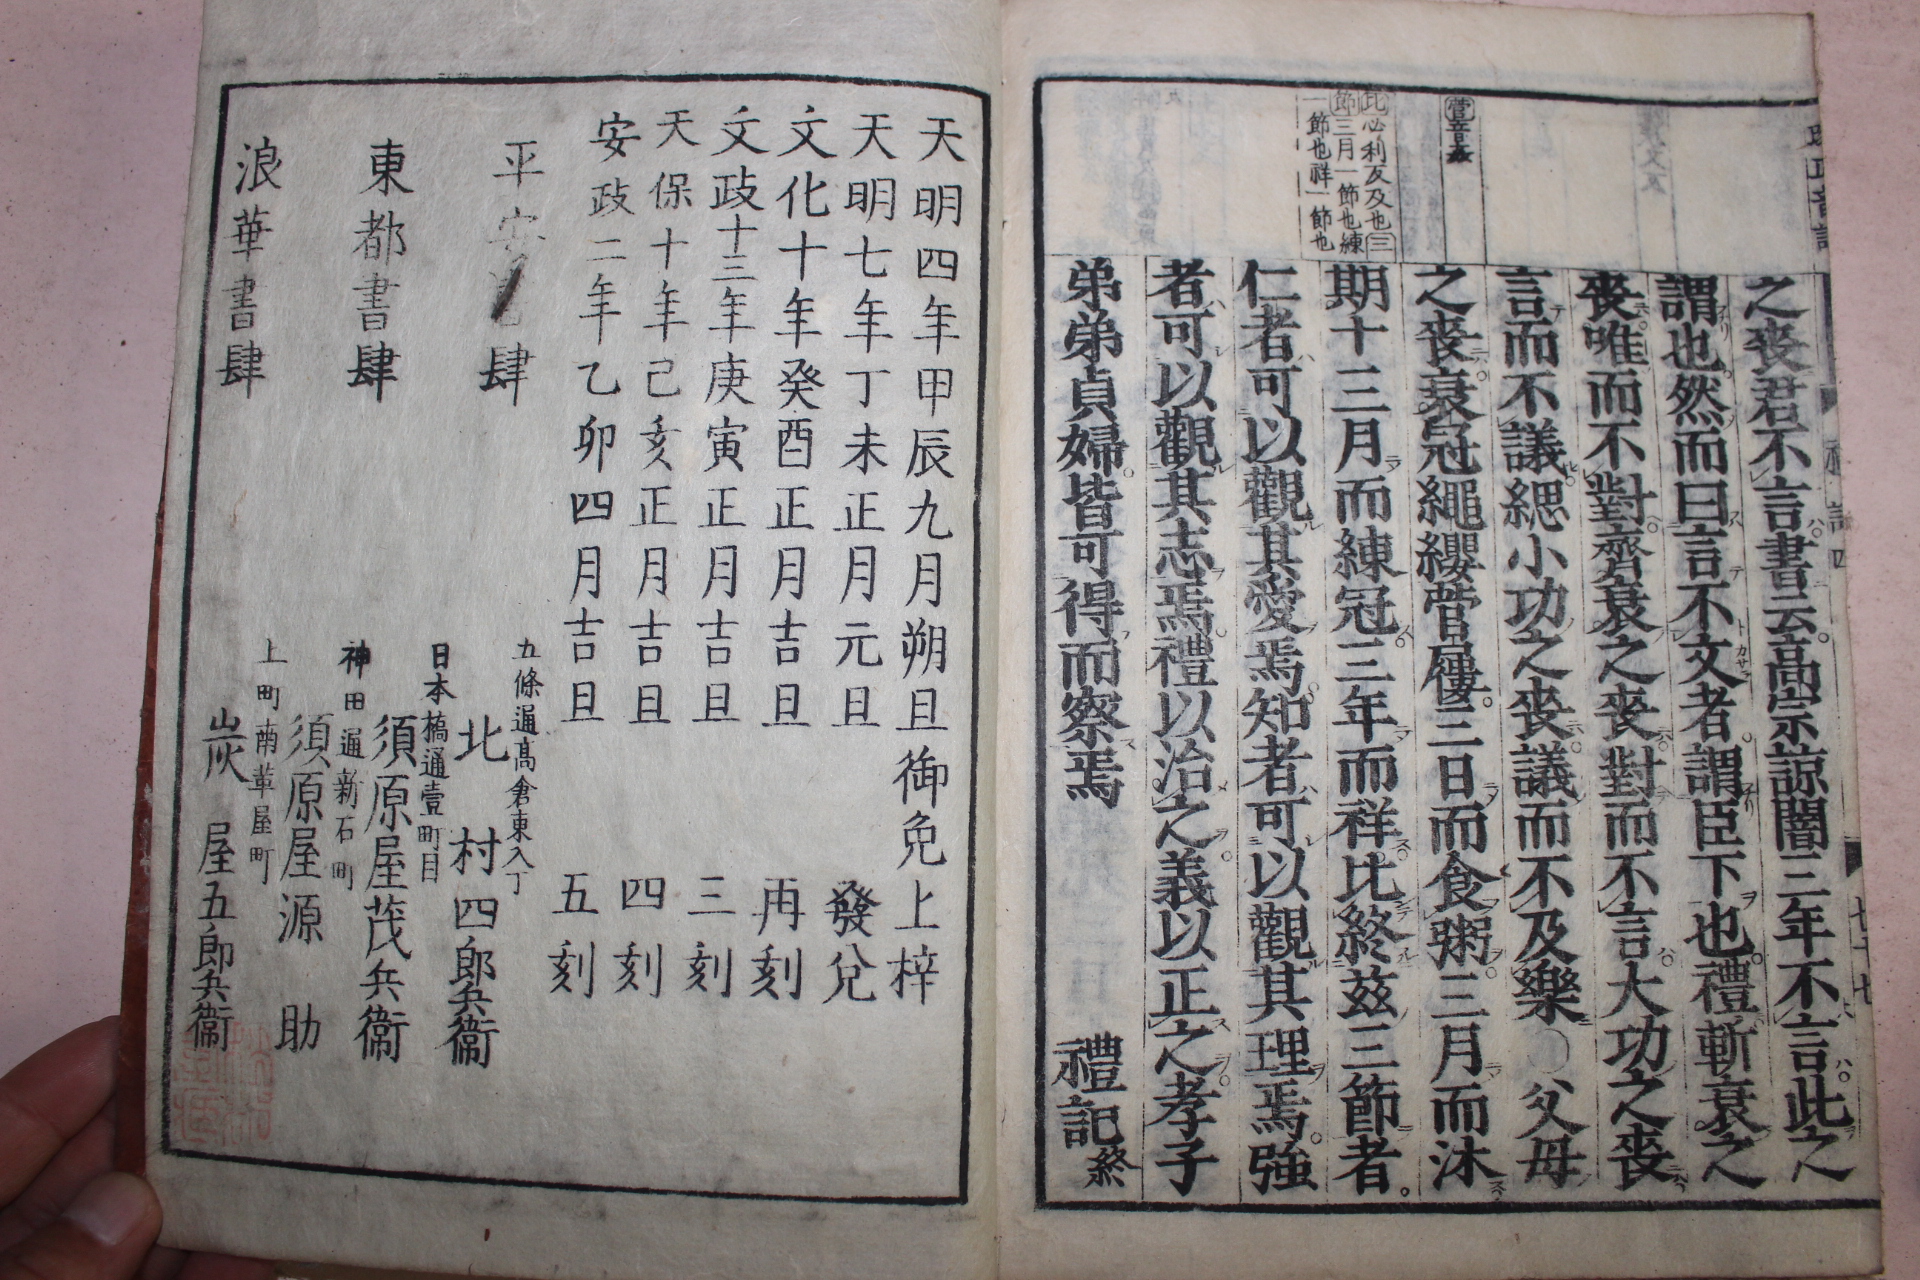 菅音姦
比必利反及也三
節三月一節也練
一節也祥一節也
之喪君不言書云高宗諒闇三年不言此之
謂也然而曰言不文者謂臣下也禮斬衰之
喪唯而不對齊衰之喪對而不言大功之喪
言而不議緦小功之喪議而不及樂○父母
之喪衰冠繩纓菅屨三日而食粥三月而沐
期十三月而練冠三年而祥比終茲三節者
仁者可以觀其愛焉知者可以觀其理焉強
者可以觀其志焉禮以治之義以正之孝子
弟弟貞婦皆可得而察焉
禮記終
天明四年甲辰九月朔旦御免上梓
天明七年丁未正月元旦 發兌
文化十年癸酉正月吉旦 再刻
文政十三年庚寅正月吉旦 三刻
天保十年己亥正月吉旦 四刻
安政二年乙卯四月吉旦 五刻
平安書肆
五條通高倉東入丁
北村四郎兵衞
東都書肆
日本橋通壹町目
須原屋茂兵衞
神田通新石町
須原屋源助
浪華書肆
上町南革屋町
炭屋五郎兵衞